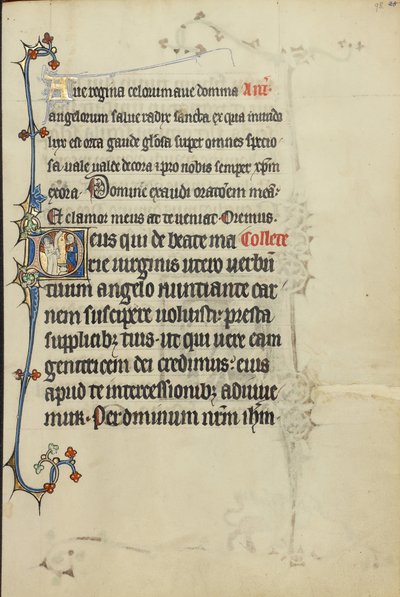 98
Aue regina celorum aue domina Ant̄.
angelorum salue radix sancta ex qua mundo
lux est orta gaude gl̄osa super omnes specio
sa uale ualde decora ⁊ pro nobis semper xp̄m
exora. Domine exaudi orat̄oem meā.
Et clamor meus ad te ueniat. Oremus.
Deus qui de beate ma Collecte
rie uirginis utero uerbū
tuum angelo nuntiante car
nem suscipere uoluisti. presta
supplicibꝫ tuis. ut qui uere eam
genitricem dei credimus. eius
apud te intercessionibꝫ adiuue
mur. Per dominum nr̄m ihm̄.